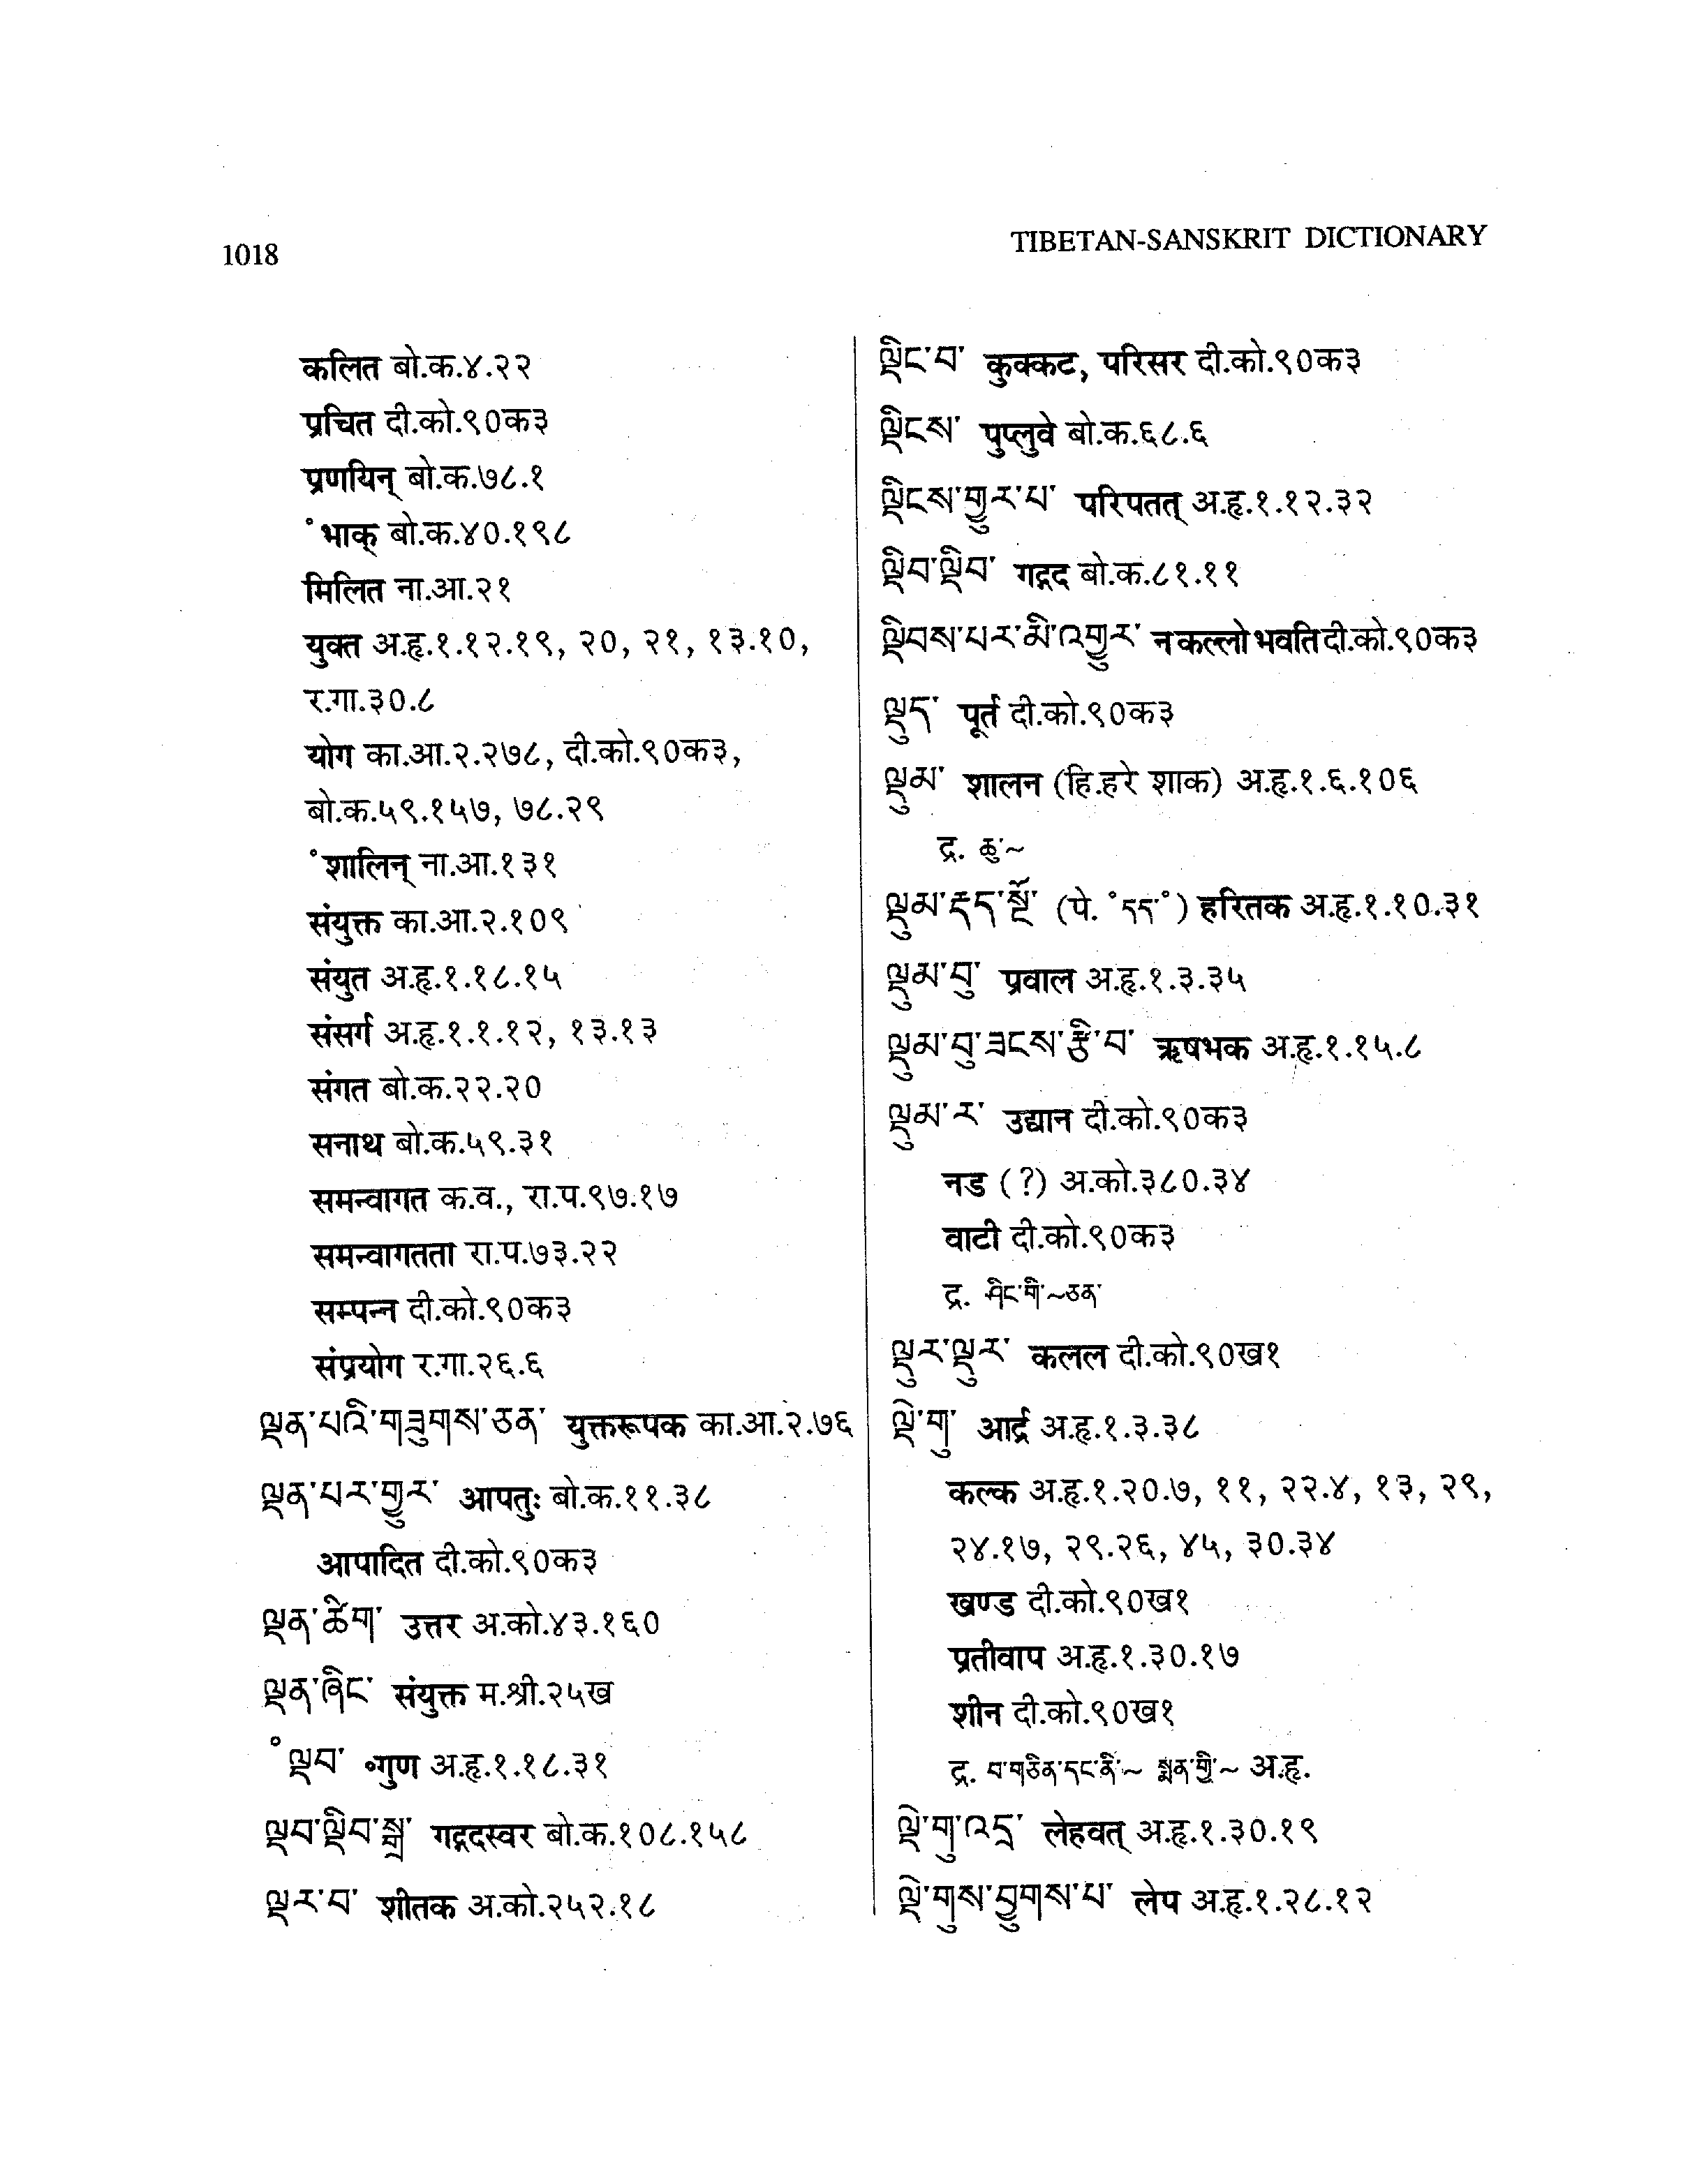 1018
TIBETAN-SANSKRIT DICTIONARY
कलित बो.क.४.२२
प्रचित दी.को.९०क३
प्रणयिन् बो.क.७८.१
॰भाक् बो.क.४०.१९८
मिलित ना.आ.२१
युक्त अ.हृ.१.१२.१९, २०, २१, १३.१०,
र.गा.३०.८
योग का.आ.२.२७८, दी.को.९०क३,
बो.क.५९.१५७, ७८.२९
॰शालिन् ना.आ.१३१
संयुक्त का.आ.२.१०९
संयुत अ.हृ.१.१८.१५
संसर्ग अ.हृ.१.१.१२, १३.१३
संगत बो.क.२२.२०
सनाथ बो.क.५९.३१
समन्वागत क.व., रा.प.९७.१७
समन्वागतता रा.प.७३.२२
सम्पन्न दी.को.९०क३
संप्रयोग र.गा.२६.६
ལྡན་པའི་གཟུགས་ཅན་ युक्तरूपक का.आ.२.७६
ལྡན་པར་གྱུར་ आपतुः बो.क.११.३८
आपादित दी.को.९०क३
ལྡན་ཚིག་ उत्तर अ.को.४३.१६०
ལྡན་ཞིང་ संयुक्त म.श्री.२५ख
॰ལྡབ་ ॰गुण अ.हृ.१.१८.३१
ལྡབ་ལྡིབ་སྒྲ་ गद्गदस्वर बो.क.१०८.१५८
ལྡར་བ་ शीतक अ.को.२५२.१८
ལྡིང་བ་ कुक्कट, परिसर दी.को.९०क३
ལྡིངས་ पुप्लुवे बो.क.६८.६
ལྡིངས་གྱུར་པ་ परिपतत् अ.हृ.१.१२.३२
ལྡིབ་ལྡིབ་ गद्गद बो.क.८१.११
ལྡིབས་པར་མི་འགྱུར་ न कल्लो भवति दी.को.९०क३
ལྡུད་ पूर्त दी.को.९०क३
ལྡུམ་ शालन (हि.हरे शाक) अ.हृ.१.६.१०६
द्र. ཆུ་~
ལྡུམ་རྡད་སྔོ་ (पे. ॰དད་॰) हरितक अ.हृ.१.१०.३१
ལྡུམ་བུ་ प्रवाल अ.हृ.१.३.३५
ལྡུམ་བུ་ཟངས་རྩི་བ་ ऋषभक अ.हृ.१.१५.८
ལྡུམ་ར་ उद्यान दी.को.९०क३
नड (?) अ.को.३८०.३४
वाटी दी.को.९०क३
द्र. ཤིང་གི་~ཅན་
ལྡུར་ལྡུར་ कलल दी.को.९०ख१
ལྡེ་གུ་ आर्द्र अ.हृ.१.३.३८
कल्क अ.हृ.१.२०.७, ११, २२.४, १३, २९,
२४.१७, २९.२६, ४५, ३०.३४
खण्ड दी.को.९०ख१
प्रतीवाप अ.हृ.१.३०.१७
शीन दी.को.९०ख१
द्र. བ་གཅིན་དང་ནི་~ སྨན་གྱི་~ अ.हृ.
ལྡེ་གུ་འདྲ་ लेहवत् अ.हृ.१.३०.१९
ལྡེ་གུས་བྱུགས་པ་ लेप अ.हृ.१.२८.१२